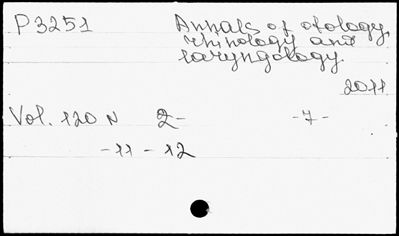 P3251 Annals of otology,
rhinology and
laryngology
2011
Vol. 120 N 2- -7-
-11-12